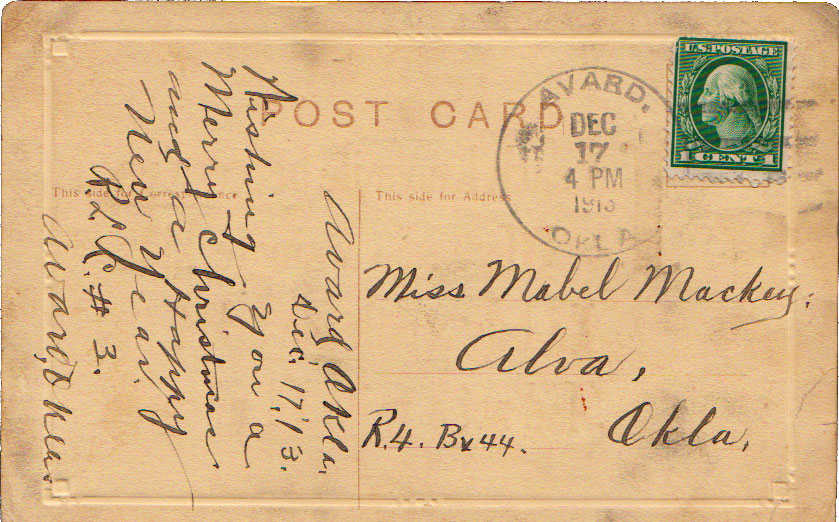 POST CARD
This side for Correspondence
This side for Address
U.S. POSTAGE
1 CENT 1
AVARD,
DEC
17
4 PM
1913
OKLA
Avard, Okla.
Dec. 17, 13.
Wishing you a
Merry Christmas
and a Happy
New Year.
Avard, Okla.
Miss Mabel Mackey.
Alva,
R.4. Bx 44. Okla.